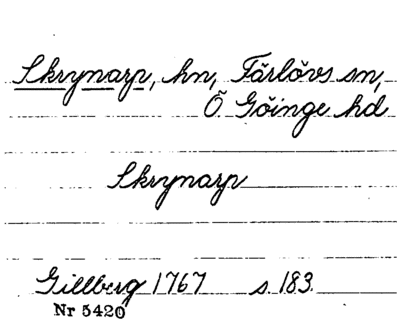 Skrynarp, hn, Färlövs sn,
Ö Göinge hd
Skrynarp
Gillberg 1767 s. 183.
Nr 5420